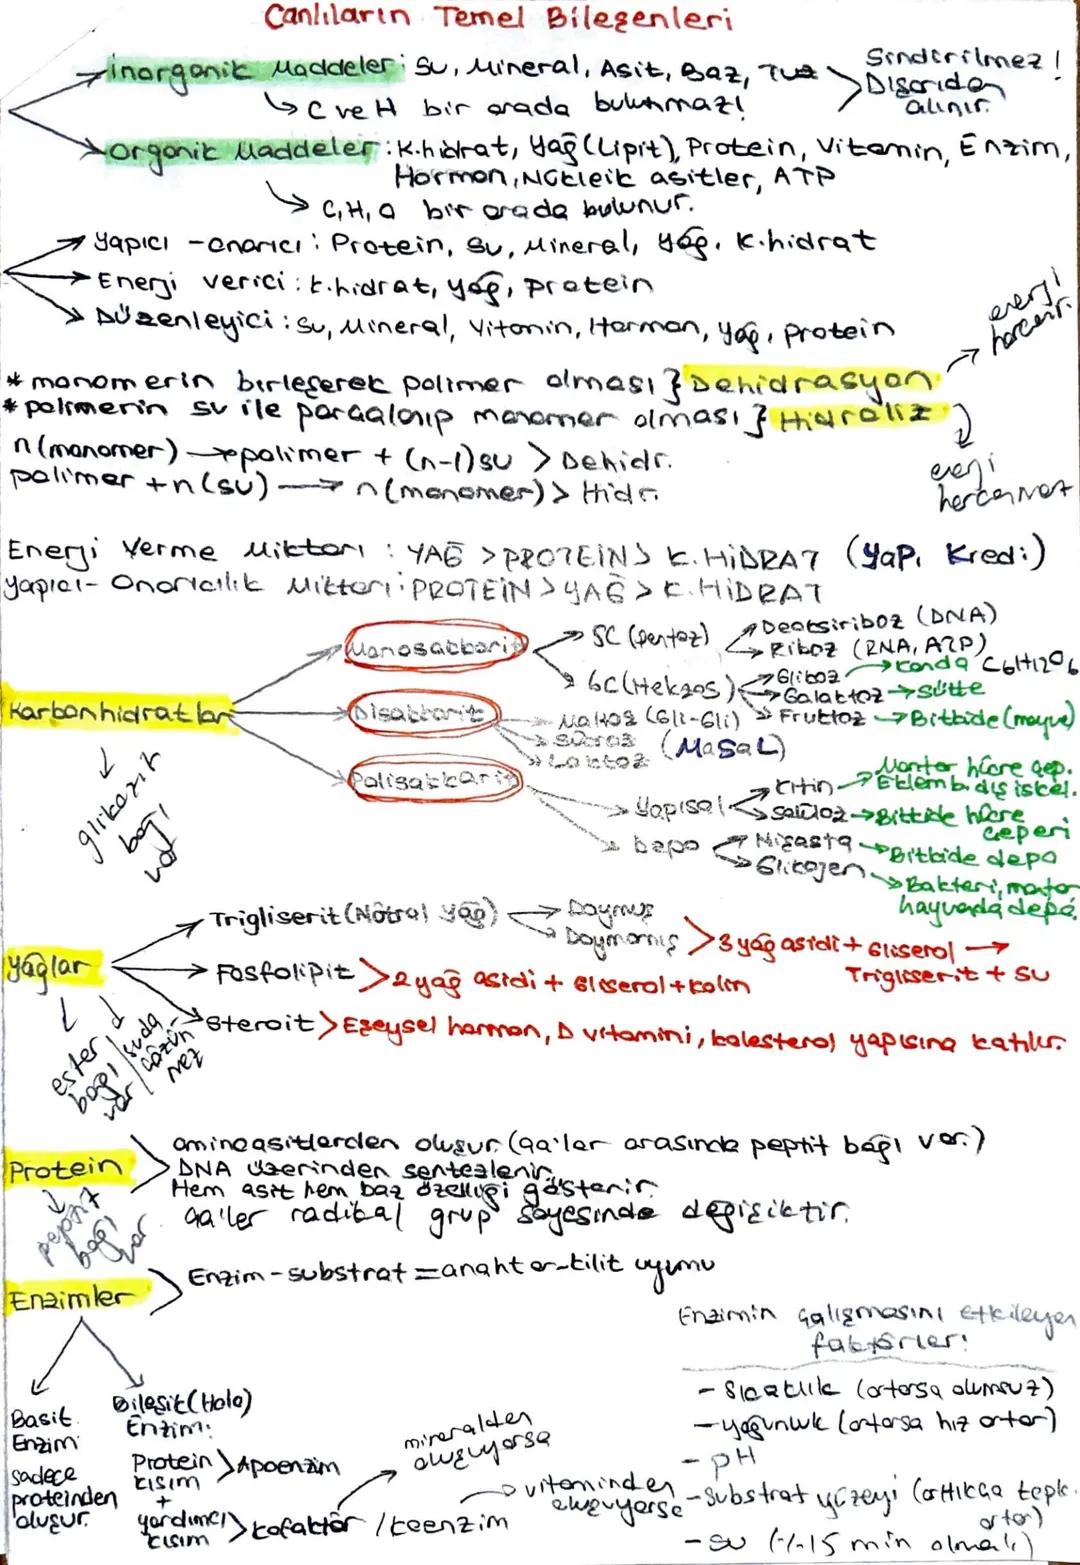 Canlıların Temel Bileşenleri
inorganik Maddeler: Su, Mineral, Asit, Baz, Tuz
Sindirilmez!
Dışarıdan
alınır.
C ve H bir arada bulunmaz!
Organik Maddeler: K.hidrat, Yağ (Lipit), Protein, Vitamin, Enzim,
Hormon, Nükleik asitler, ATP
C, H, O bir arada bulunur.
Yapıcı - onarıcı: Protein, Su, Mineral, Yağ, K.hidrat
Enerji verici: k.hidrat, yağ, protein
Düzenleyici: Su, Mineral, Vitamin, Hormon, yağ, protein
* monomerin birleşerek polimer olması } Dehidrasyon
enerji
harcanır.
* polimerin su ile parçalanıp monomer olması } Hidroliz
enerji
harcanmaz
n(monomer) → polimer + (n-1)su > Dehidr.
polimer + n(su) → n(monomer) > Hidr.
Enerji Verme Miktarı: YAĞ > PROTEİN > K.HİDRAT (Yapı Kredi)
yapıcı - Onarıcılık Miktarı: PROTEİN > YAĞ > K.HİDRAT
Karbonhidratlar
glikozit
bağı
var
Monosakkarit
5C (pentoz)
Deoksiriboz (DNA)
Riboz (RNA, ATP)
6C (Heksoz)
Glikoz → kanda C6H12O6
Galaktoz → Sütte
Fruktoz → Bitkide (meyve)
Disakkarit
Maltoz (Gli-Gli)
Sükroz
Laktoz
(MaSaL)
Polisakkarit
Yapısal
Kitin → Mantar hücre çep.
Eklemb. dış iskel.
Selüloz → Bitkide hücre
çeperi
Depo
Nişasta → Bitkide depo
Glikojen → Bakteri, mantar
hayvanda depo.
Yağlar
ester
bağı
var
suda
çözün
mez
Trigliserit (Nötral yağ)
Doymuş
Doymamış
> 3 yağ asidi + Gliserol →
Trigliserit + Su
Fosfolipit > 2 yağ asidi + Gliserol + kolin
Steroit > Eşeysel hormon, D vitamini, kolesterol yapısına katılır.
Protein
peptit
bağı
var
aminoasitlerden oluşur. (aa'lar arasında peptit bağı var.)
DNA üzerinden sentezlenir.
Hem asit hem baz özelliği gösterir.
aa'ler radikal grup sayesinde değişiktir.
Enzimler
Enzim - substrat = anahtar-kilit uyumu
Basit
Enzim
sadece
proteinden
oluşur.
Bileşit (Holo)
Enzim:
Protein
kısım
> Apoenzim
+
yardımcı
kısım
> kofaktör / koenzim
mineralden
oluşuyorsa
vitaminden
oluşuyorsa
Enzimin Çalışmasını etkileyen
faktörler:
- Sıcaklık (artarsa olumsuz)
- yoğunluk (artarsa hız artar)
- pH
- Substrat yüzeyi (arttıkça tepk.
artar)
- su (%15 min olmalı)